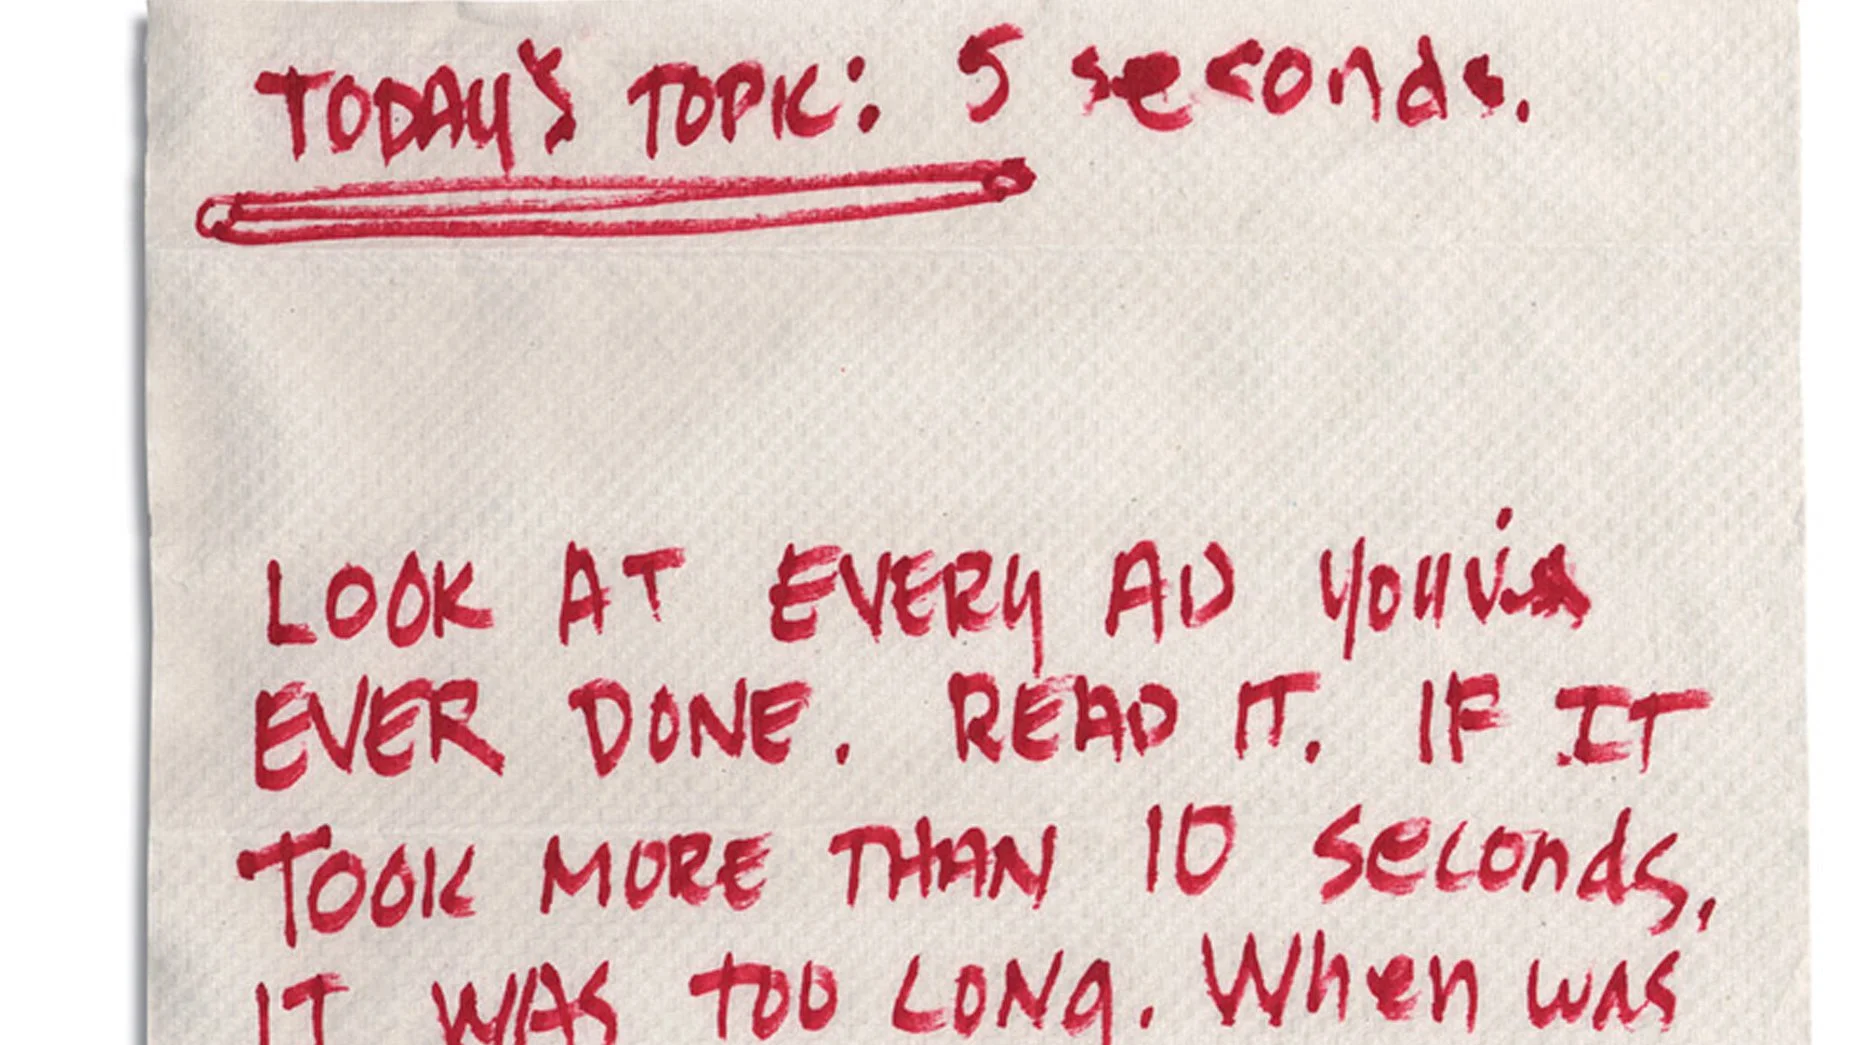 TODAY'S TOPIC: 5 seconds.
LOOK AT EVERY AD YOU'VE
EVER DONE. READ IT. IF IT
TOOK MORE THAN 10 seconds,
IT WAS TOO LONG. When was